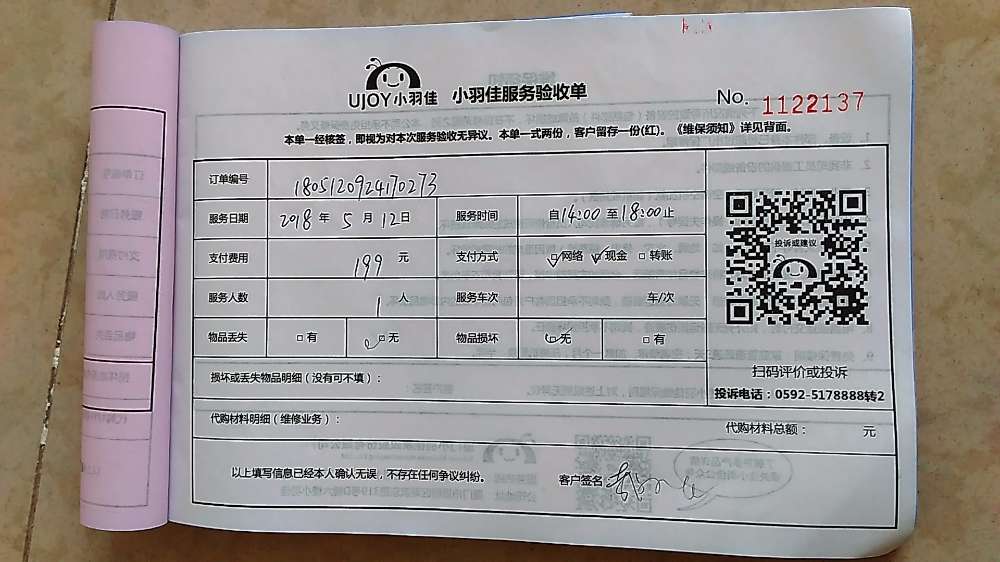 UJOY小羽佳 小羽佳服务验收单
No. 1122137
本单一经核签，即视为对本次服务验收无异议。本单一式两份，客户留存一份(红)。《维保须知》详见背面。
订单编号 1805120924170273
服务日期 2018 年 5 月 12 日 服务时间 自 14:00 至 18:00 止
支付费用 199 元 支付方式 网络 现金 转账
服务人数 1 人 服务车次 车/次
物品丢失 有 无 物品损坏 无 有
投诉或建议
扫码评价或投诉
投诉电话：0592-5178888转2
损坏或丢失物品明细（没有可不填）：
代购材料明细（维修业务）： 代购材料总额： 元
以上填写信息已经本人确认无误，不存在任何争议纠纷。 客户签名